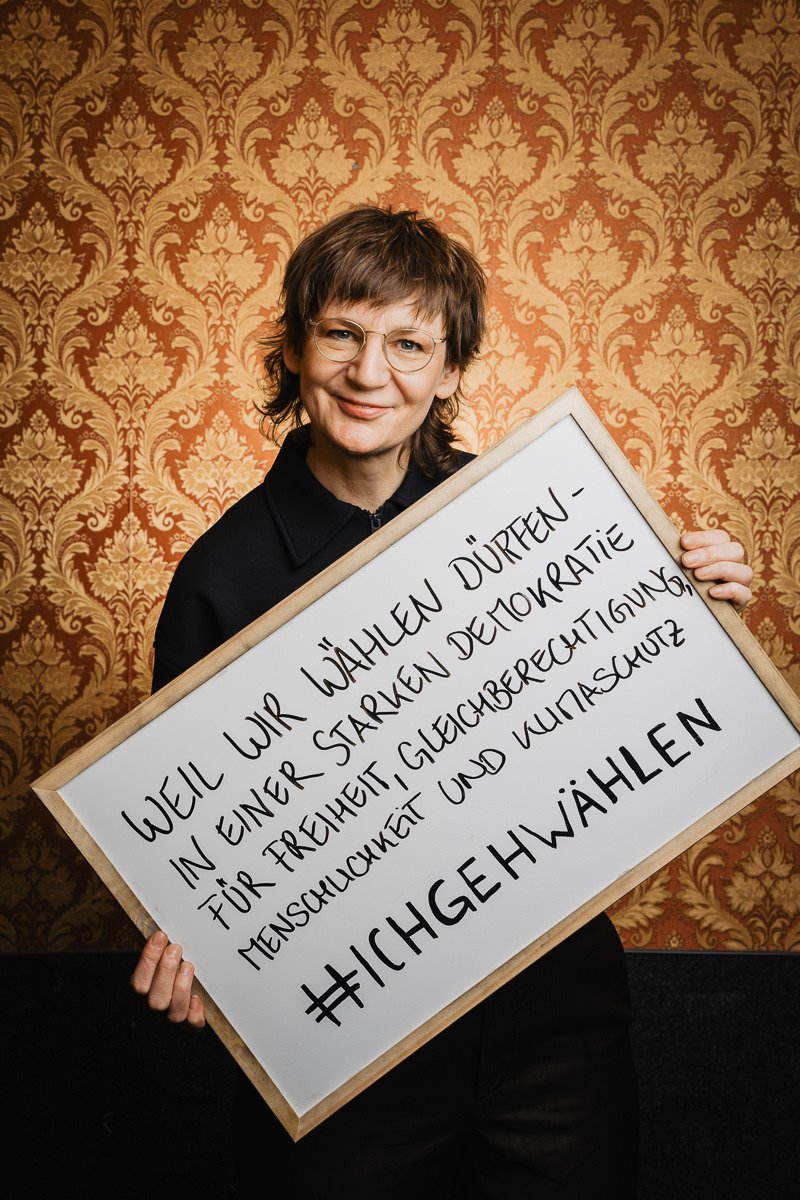 WEIL WIR WÄHLEN DÜRFEN -
IN EINER STARKEN DEMOKRATIE
FÜR FREIHEIT, GLEICHBERECHTIGUNG,
MENSCHLICHKEIT UND KLIMASCHUTZ
#ICHGEHWÄHLEN